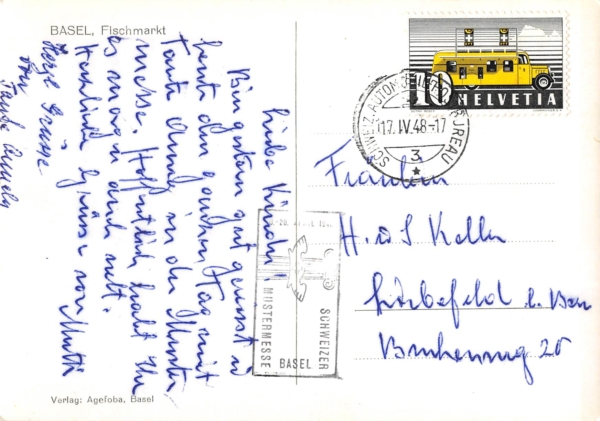 BASEL, Fischmarkt
Liebe Kinder!
Bin gestern gut gereist u.
heute den ganzen Tag mit
Tante Anny in der Muster-
messe. Hoffentlich habt Ihr
es morgen auch nett.
Herzliche Grüsse von Mutti
Herzl. Grüsse
von
Tante
Verlag: Agefoba, Basel
10 HELVETIA
SCHWEIZ. AUTOMOBIL-POSTBUREAU
17.IV.48-17
3
MUSTERMESSE
BASEL
SCHWEIZER
Fräulein
H. u S Keller
Liebefeld b. Bern
20